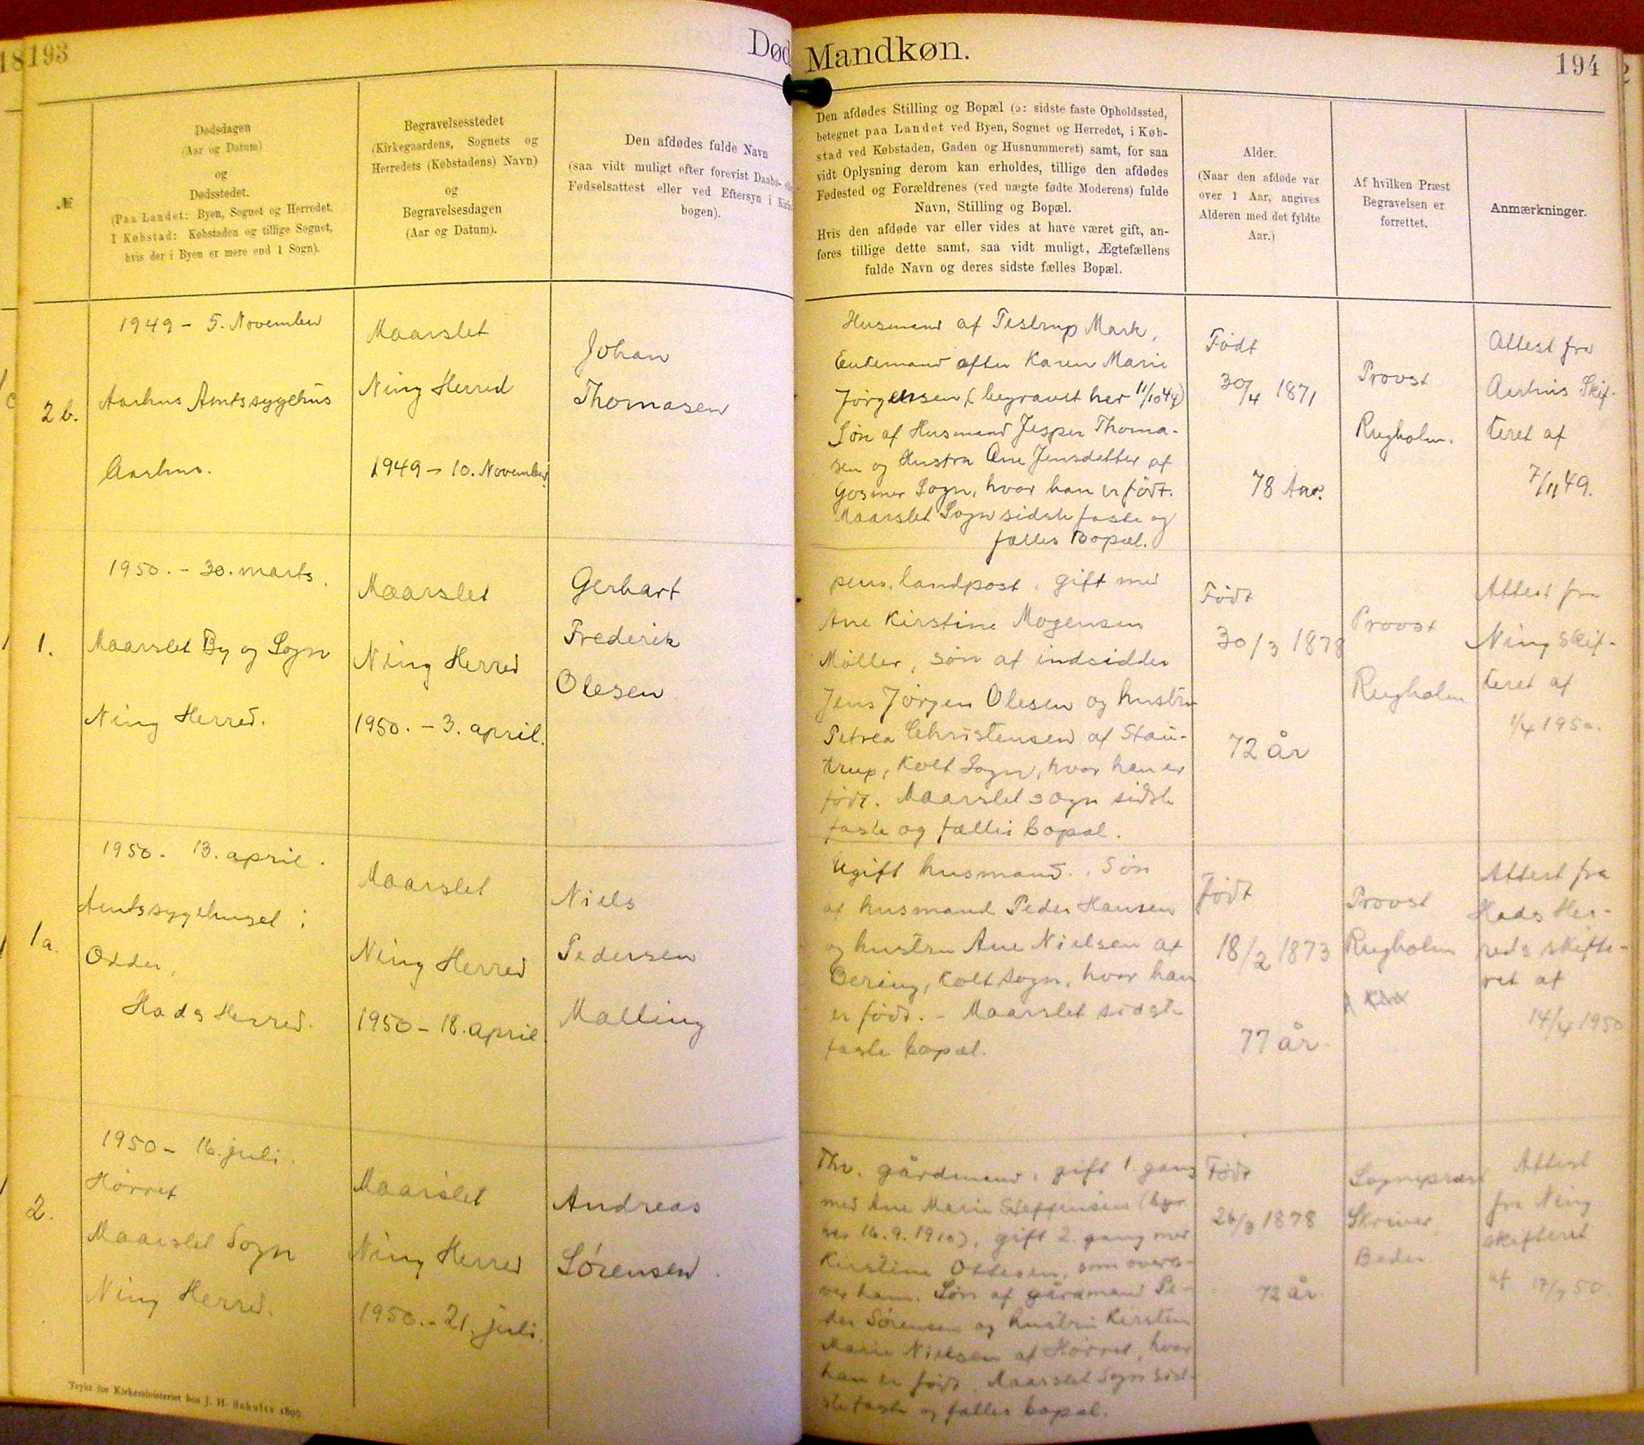 193
Død
Mandkøn.
194
№
Dødsdagen
(Aar og Datum)
og
Dødsstedet.
(Paa Landet: Byen, Sognet og Herredet,
I Købstad: Købstaden og tillige Sognet,
hvis der i Byen er mere end 1 Sogn).
Begravelsesstedet
(Kirkegaardens, Sognets og
Herredets (Købstadens) Navn)
og
Begravelsesdagen
(Aar og Datum).
Den afdødes fulde Navn
(saa vidt muligt efter forevist Daabs-
Fødselsattest eller ved Eftersyn i
bogen).
Den afdødes Stilling og Bopæl (ɔ: sidste faste Opholdssted,
betegnet paa Landet ved Byen, Sognet og Herredet, i Køb-
stad ved Købstaden, Gaden og Husnummeret) samt, for saa
vidt Oplysning derom kan erholdes, tillige den afdødes
Fødested og Forældrenes (ved uægte fødte Moderens) fulde
Navn, Stilling og Bopæl.
Hvis den afdøde var eller vides at have været gift, an-
føres tillige dette samt, saa vidt muligt, Ægtefællens
fulde Navn og deres sidste fælles Bopæl.
Alder.
(Naar den afdøde var
over 1 Aar, angives
Alderen med det fyldte
Aar.)
Af hvilken Præst
Begravelsen er
forrettet.
Anmærkninger.
2 b.
1949 - 5. November
Aarhus Amtssygehus
Aarhus.
Maarslet
Ning Herred
1949 - 10. November
Johan
Thomasen
Husmand af Testrup Mark,
Enkemand efter Karen Marie
Jørgensen (begravet her 11/10 49)
Søn af Husmand Jesper Thoma-
sen og Hustru Ane Jensdatter af
Gosmer Sogn, hvor han er født.
Maarslet Sogn sidste faste og
fælles Bopæl.
Født
30/4 1871
78 Aar.
Provst
Rugholm.
Attest fra
Aarhus Skif-
teret af
7/11 49.
1.
1950. - 30. marts.
Maarslet By og Sogn
Ning Herred.
Maarslet
Ning Herred
1950. - 3. april.
Gerhart
Frederik
Olesen
pens. landpost, gift med
Ane Kirstine Mogensen
Møller, søn af indsidder
Jens Jørgen Olesen og hustru
Petrea Christensen af Stau-
trup, Kolt Sogn, hvor han er
født. Maarslet sogn sidste
faste og fælles bopæl.
Født
30/3 1878
72 år
Provst
Rugholm
Attest fra
Ning Skif-
teret af
1/4 1950.
1a.
1950. 13. april.
Amtssygehuset i
Odder,
Hads Herred.
Maarslet
Ning Herred
1950 - 18. april
Niels
Pedersen
Malling
Ugift husmand. Søn
af husmand Peder Hansen
og hustru Ane Nielsen af
Bering, Kolt sogn, hvor han
er født. - Maarslet sidste
faste bopæl.
Født
18/2 1873
77 år.
Provst
Rugholm
Attest fra
Hads Her-
reds skifte-
ret af
14/4 1950
2.
1950 - 16. juli.
Hørret
Maarslet Sogn
Ning Herred.
Maarslet
Ning Herred
1950. - 21. juli.
Andreas
Sørensen.
Fhv. gårdmand, gift 1. gang
med Ane Marie Steffensen
16.9.1910), gift 2. gang med
Kirstine Ottesen, som overle-
ver ham. Søn af gårdmand Pe-
der Sørensen og hustru Kirsten
Marie Nielsen af Hørret, hvor
han er født. Maarslet Sogn sid-
ste faste og fælles bopæl.
Født
26/3 1878
72 år
Sognepræst
Skriver
Beder
Attest
fra Ning
skifteret
af 17/7 50.
Trykt for Kirkeministeriet hos J. H. Schultz